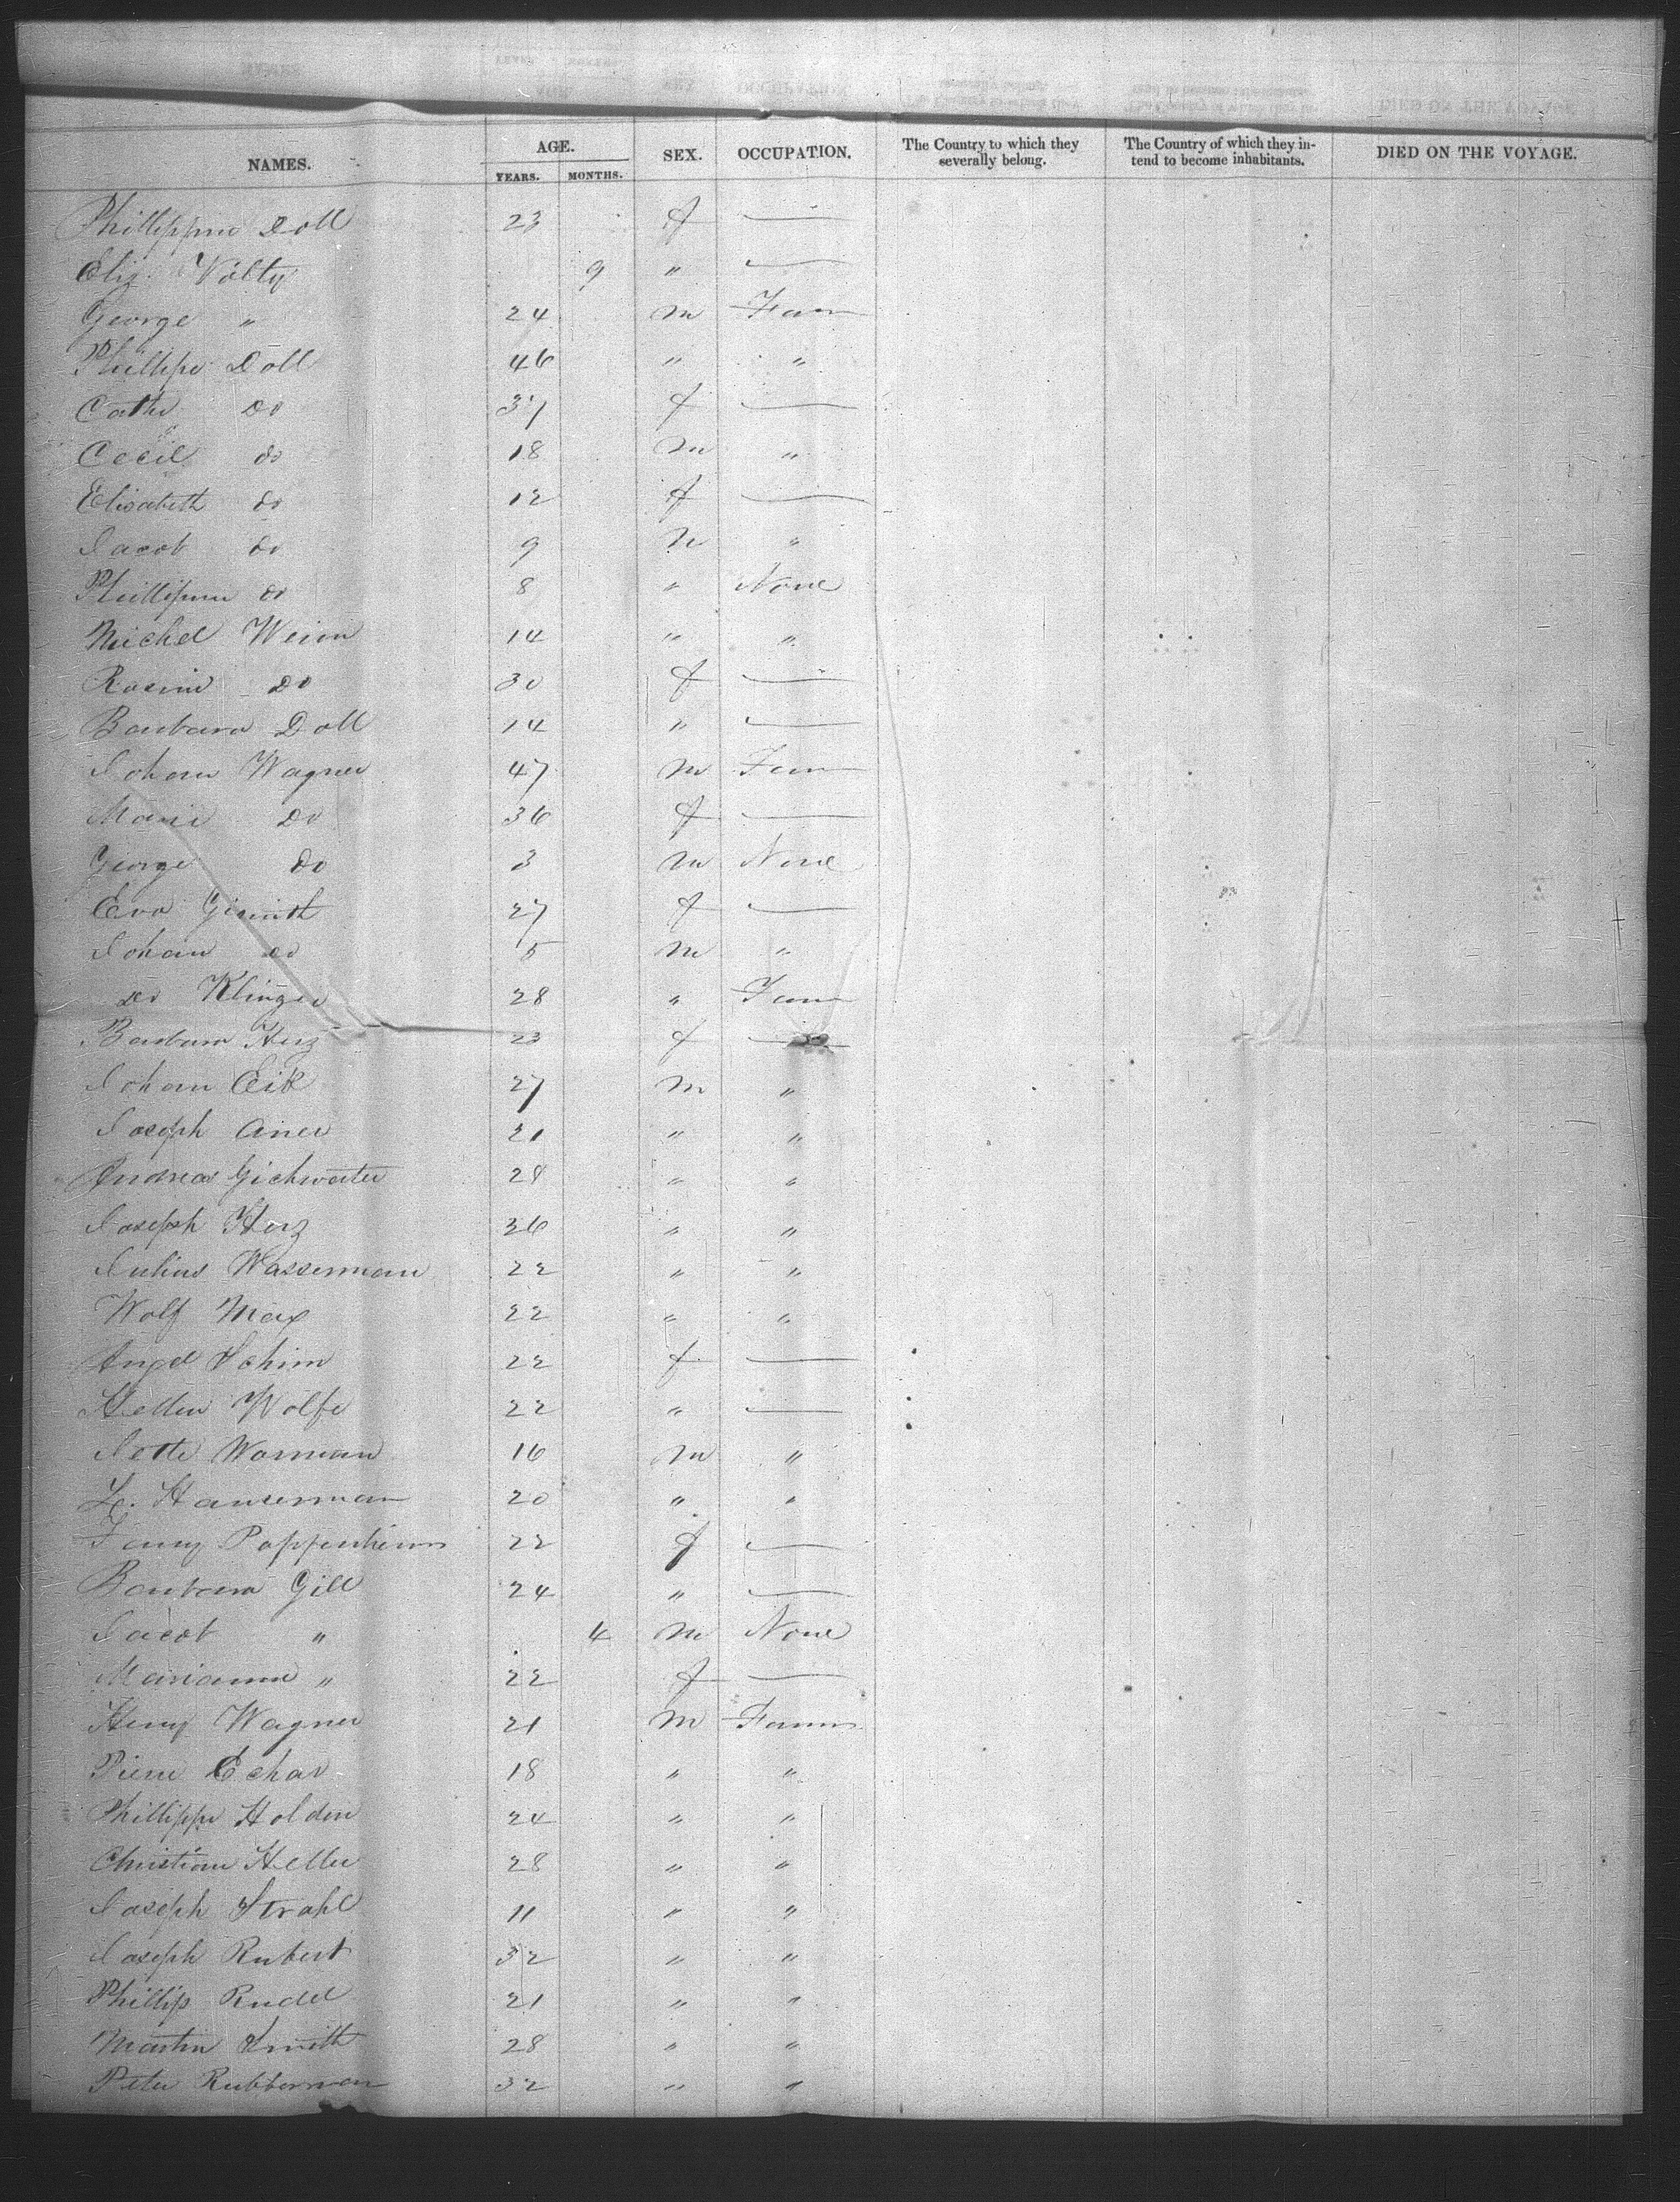 NAMES. AGE. YEARS. MONTHS. SEX. OCCUPATION. The Country to which they severally belong. The Country of which they intend to become inhabitants. DIED ON THE VOYAGE.
Phillippine Doll 23 f —
Eliz. Volty 9 " —
George " 24 m Farm
Phillipe Doll 46 " "
Cathe Do 37 f —
Cecil do 18 m "
Elisabeth do 12 f —
Jacob do 9 m "
Phillipine do 8 " None
Michel Weim 14 " "
Rosine Do 30 f —
Barbara Doll 14 " —
Johann Wagner 47 m Farm
Marie Do 36 f —
George Do 3 m None
Eva 27 f —
Johann do 5 m "
Do Klinger 28 " Farm
Barbara Herz 23 f —
Johann Eik 27 m "
Joseph Aner 21 " "
Andreas Gichwater 28 " "
Joseph Herz 36 " "
Julius Wasserman 22 " "
Wolf Max 22 " "
Angel Schim 22 f —
Hellen Wolfe 22 " —
Worman 16 m "
L. Hauserman 20 " "
Fanny Pappenheim 22 f —
Barbara Gill 24 " —
Jacob " 4 m None
Marianne " 22 f —
Henry Wagner 21 m Farmer
Pierre Echar 18 " "
Phillippe Holden 24 " "
Christian Heller 28 " "
Joseph Strahl 11 " "
Joseph Rubert 32 " "
Phillip Rudel 21 " "
Martin Smith 28 " "
Peter Rubberman 32 " "